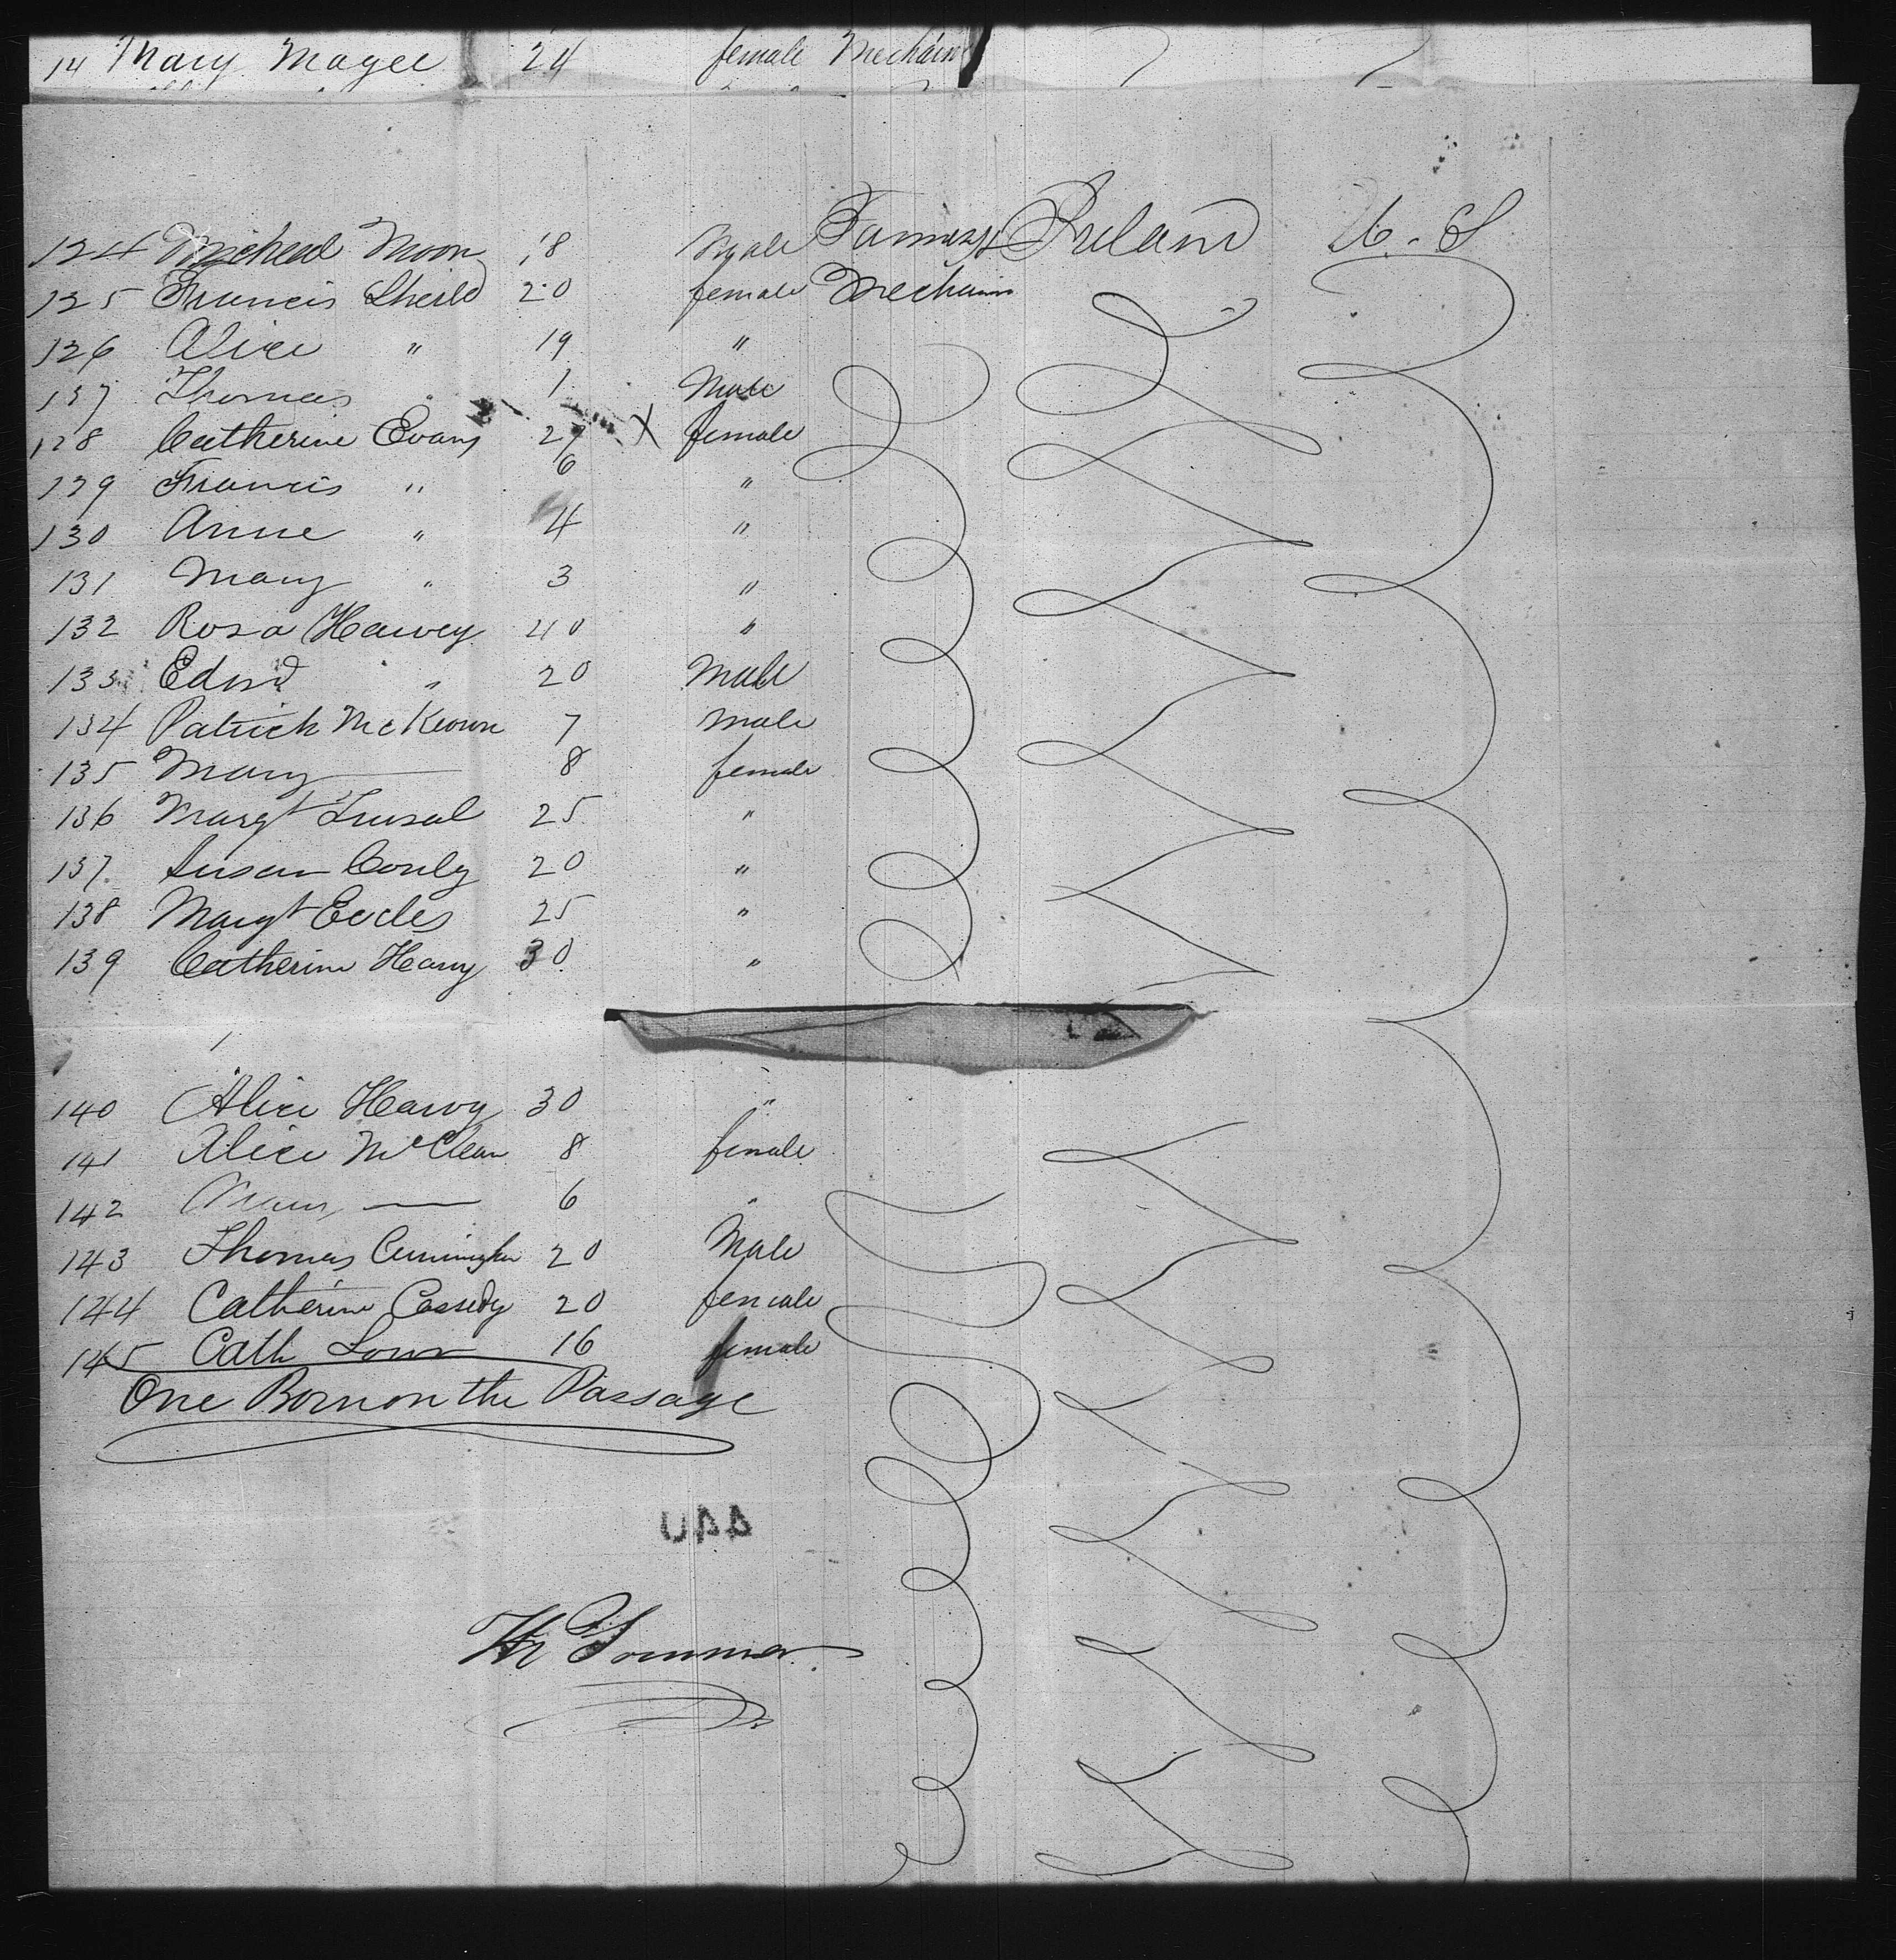 14 Mary Magee 24 female Mechain
124 Micheal Moon 18 Male Farmers Ireland U. S
125 Francis Sheild 20 female Mechain
126 Alice " 19 "
137 Thomas " 1 Male
128 Catherine Evans 27 X female
129 Francis " 6 "
130 Anne " 4 "
131 Mary " 3 "
132 Rosa Harvey 40 "
133 Edwd " 20 Male
134 Patrick McKeown 7 male
135 Mary — 8 female
136 Margt 25 "
137 Susan Conly 20 "
138 Margt Eccles 25 "
139 Catherine Harvy 30 "
140 Alice Harvy 30 "
141 Alice McClean 8 female
142 — 6 "
143 Thomas Cunningham 20 Male
144 Catherine Cassedy 20 female
145 Cath 16 female
One Born on the Passage
440